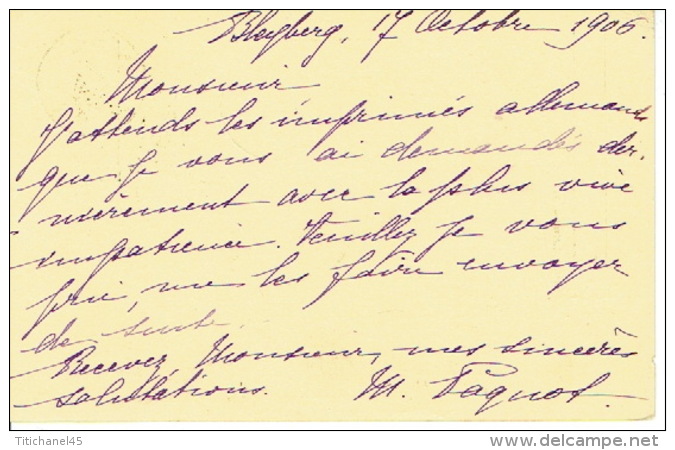 Bleyberg, 17 Octobre 1906.
Monsieur
J'attends les imprimés allemands
que je vous ai demandés der-
nièrement avec la plus vive
impatience. Veuillez je vous
prie, me les faire envoyer
de suite.
Recevez Monsieur, mes sincères
salutations. M. Pagnot.
Titichanel45
http://www.delcampe.net